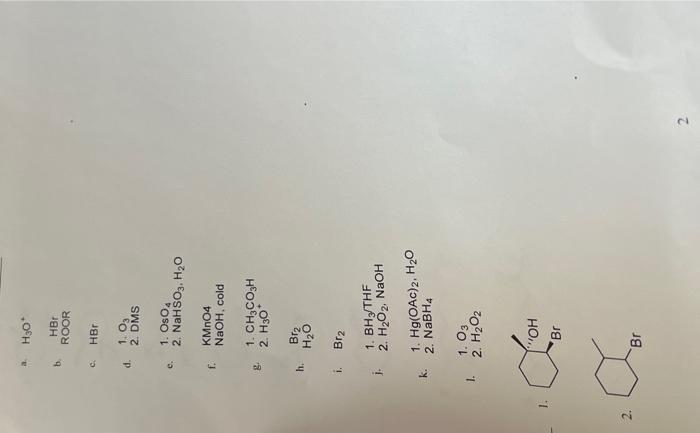 a. H₃O⁺
b. HBr
ROOR
c. HBr
d. 1. O₃
2. DMS
e. 1. OsO₄
2. NaHSO₃, H₂O
f. KMnO4
NaOH, cold
g. 1. CH₃CO₃H
2. H₃O⁺
h. Br₂
H₂O
i. Br₂
j. 1. BH₃/THF
2. H₂O₂, NaOH
k. 1. Hg(OAc)₂, H₂O
2. NaBH₄
l. 1. O₃
2. H₂O₂
1. OH
Br
2. Br
2